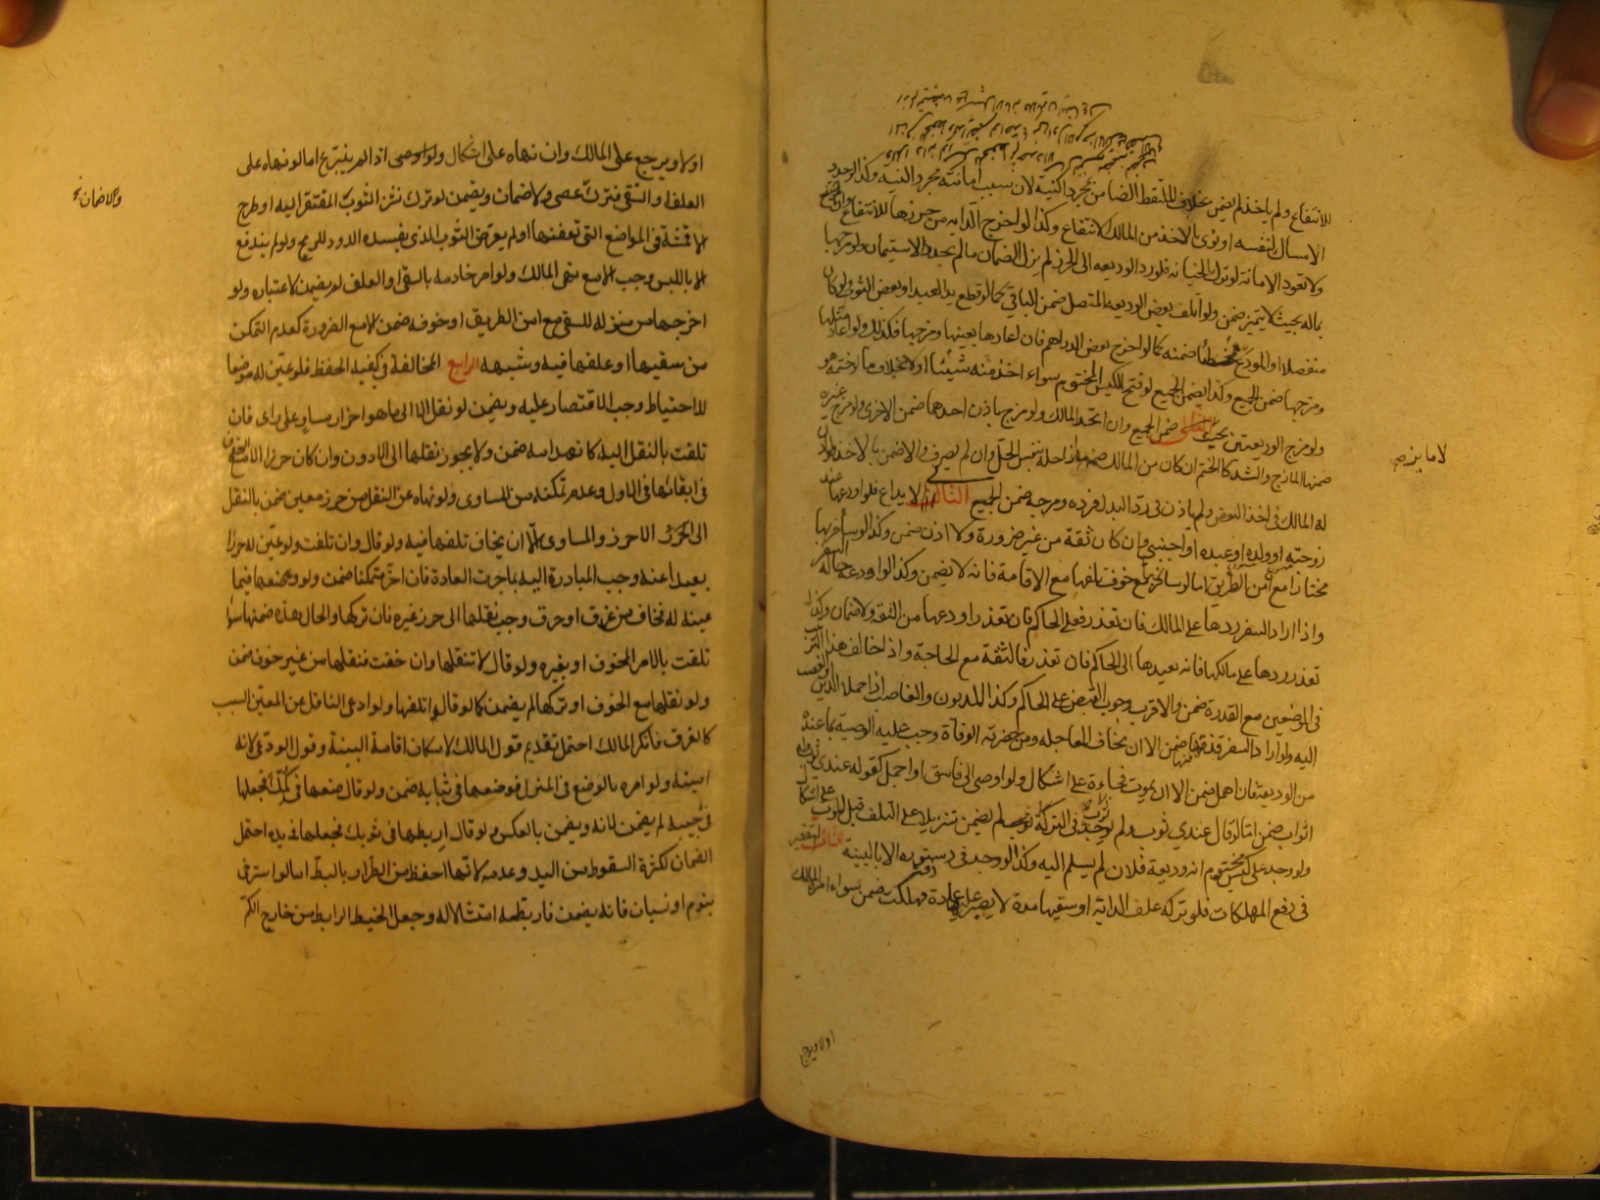 للانتفاع ولم ياخذ لم يضمن بخلاف الملتقط الضامن بمجرد النية لان سبب امانته مجرد النية وكذا لو جدد
الامساك لنفسه او نوى بالاخذ من المالك الانتفاع وكذا لو اخرج الدابة من حرزها للانتفاع وان لم ينتفع
ولا تعود الامانة لو ترك الخيانة فلو رد الوديعه الى الحرز لم يزل الضمان ما لم يجدد الاستيمان ولو مزجها
بماله بحيث لا يتميز ضمن ولو اتلف بعض الوديعه المتصل ضمن الباقي كما لو قطع يد العبد او بعض الثوب ولو كان
منفصلا او المودع مخطئا ضمنه كما لو اخرج بعض الدراهم فان اعادها بعينها ومزجها فكذلك ولو اعاد مثلها
ومزجها ضمن الجميع وكذا يضمن الجميع لو فتح الكيس المختوم سواء اخذ منه شيئا او لا بخلاف ما لو ختمه هو
ولو مزج الوديعتين بحيث ضمن الجميع وان اتحد المالك ولو مزج باذن احدهما ضمن الاخرى ولو مزج غيره
ضمنها المازج والشد كالختم ان كان من المالك وان لم يصرف والا ضمن بالاخذ ولو اذن
له المالك في اخذ البعض ولم ياذن في رد البدل فرده ومزجه ضمن الجميع الثالث الايداع فلو اودعها عند
زوجته او ولده او عبده او اجنبي وان كان ثقة من غير ضرورة ولا اذن ضمن وكذا لو سافر بها
مختارا مع امن الطريق اما لو سافر بها مع خوف تلفها مع الاقامة فانه لا يضمن وكذا لو اودعه حالة السفر
واذا اراد السفر ردها على المالك فان تعذر فعلى الحاكم فان تعذر اودعها من الثقة ولا ضمان وكذا لو
تعذر ردها على مالكها فانه يعيدها الى الحاكم فان تعذر فالثقة مع الحاجة واذا خالف هذا الترتيب
في الموضعين مع القدرة ضمن والاقرب وجوب القبض على الحاكم وكذا المديون والغاصب اذا حملا الدين او الغصب
اليه ولو اراد السفر فدفنها ضمن الا ان يخاف المعاجلة ومن حضرته الوفاة وجب عليه الوصية بما عنده
من الوديعة فان اهمل ضمن الا ان يموت فجاءة على اشكال ولو اوصى الى فاسق او اجمل كقوله عندي ثوب وله
اثواب ضمن اما لو قال عندي ثوب ولم يوجد في التركة ثوب لم يضمن تنزيلا على التلف قبل الموت على اشكال
ولو وجد على كيس مختوم انه وديعة فلان لم يسلم اليه وكذا لو وجد في دستوره الا بالبينة التقصير
في دفع المهلكات فلو ترك علف الدابة او سقيها مدة لا يصبر عليه عادة فهلكت ضمن سواء امره المالك
لا ما يزمع
او لا ويرجع
او لا ويرجع على المالك وان نهاه على اشكال ولو اوصى اذا لم يتبرع اما لو نهاه على
العلف او السقي فترك عصى ولا ضمان ويضمن لو ترك نشر الثوب المفتقر اليه او طرح
الاقمشة في المواضع التي تعفنها او لم يعرض الثوب الذي يفسده الدود للريح ولو لم يندفع
الا باللبس وجب الا مع نهي المالك ولو امر خادمه بالسقي والعلف لم يضمن لاعتباره ولو
اخرجها من منزله للسقي مع امن الطريق او خوفه ضمن الا مع الضرورة كعدم التمكن
من سقيها او علفها فيه وشبهه الرابع المخالفة في كيفية الحفظ فلو عين له موضعا
للاحتياط وجب الاقتصار عليه ويضمن لو نقل الا الى ما هو احرز او مساو على راى فان
تلفت بالنقل اليه كانهدامه ضمن ولا يجوز نقلها الى الادون وان كان حرزا الا مع الخوف
في ابقائها في الاول وعدم تمكنه من المساوى ولو نهاه عن النقل من حرز معين ضمن بالنقل
الى الاحرز والمساوى الا ان يخاف تلفها فيه ولو قال وان تلفت ولو عين له حرزا
بعيدا عنه وجب المبادرة اليه بما جرت العادة فان اخر متمكنا ضمن ولو وضعها فيما
عينه له فخاف من غرق او حرق وجب نقلها الى حرز غيره فان تركها والحال هذه ضمنها سواء
تلفت بالامر المخوف او بغيره ولو قال لا تنقلها وان خفت فنقلها من غير خوف ضمن
ولو نقلها مع الخوف او تركها لم يضمن كما لو قال اتلفها ولو ادعى الناقل عن المعين السبب
كالغرق فانكر المالك احتمل تقديم قول المالك لامكان اقامة البينة وقول الودعي لانه
امينه ولو امره بالوضع في المنزل فوضعها في ثيابه ضمن ولو قال ضعها في كمك فجعلها
في جيبه لم يضمن لانه ويضمن بالعكس ولو قال اربطها في ثوبك فجعلها في يده احتمل
الضمان لكثرة السقوط من اليد وعدمه لانها احفظ من الطرار بالبط اما لو استرخى
بنوم او نسيان فانه يضمن فان ربطها امتثالا له وجعل الخيط الرابط من خارج الكم
ولا ضمان